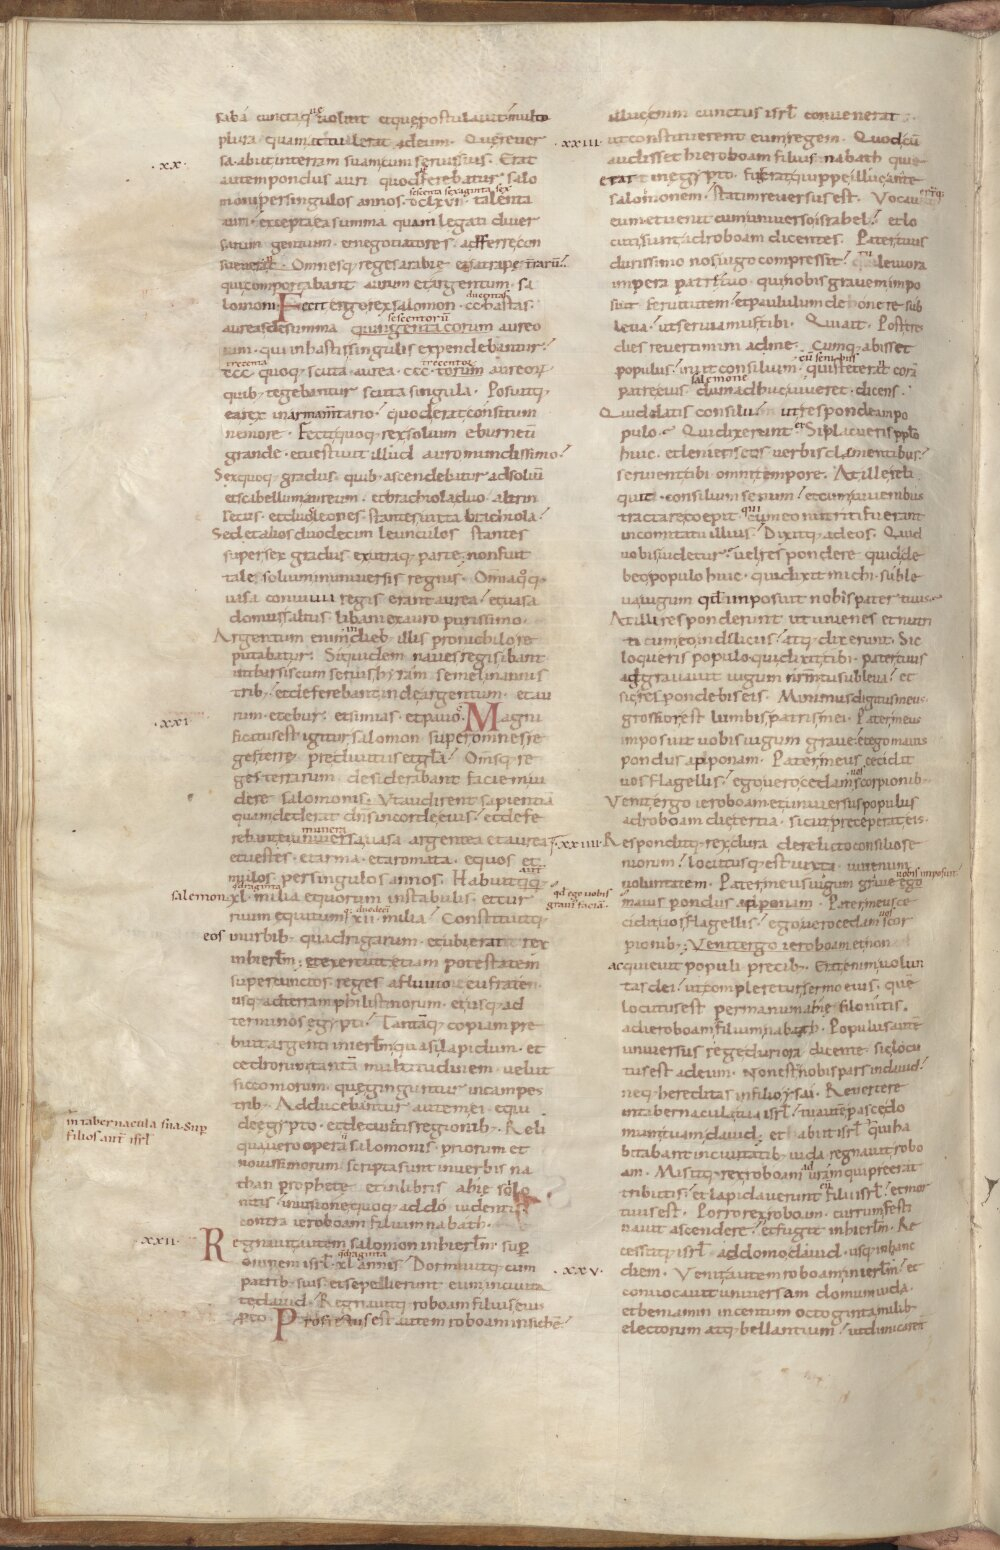 saba cunctaq; voluit et que postulavit multo
plura quam attulerat ad eum. Que rever
sa abiit in terram suam cum servis suis. Erat
·xx·
autem pondus auri quod deferebatur salo
moni per singulos annos. dclxvi. talenta
sescenta sexaginta sex
auri. excepta ea summa quam legati diver
sarum gentium. et negotiatores. adferre con
sueverant. Omnesq; reges arabie et satrape terraru.
qui comportabant aurum et argentum. sa
lomoni. Fecit ergo rex salomon. cc. hastas.
ducentas
aureas de summa
sescentoru
aureo
rum. qui in hastis singulis expendebantur.
trecenta trecentor
ccc quoq; scuta aurea. ccc. aureor
quib; tegebantur scuta singula. Posuitq;
ea rex in armamentario. quod erat consitum
nemore. Fecit quoq; rex solium eburneu
grande. et vestivit illud auro mundissimo.
Sex quoq; gradus. quib; ascendebatur ad soliu
et scabellum aureum. et brachiola duo. altrin
secus. et duo leones. stantes iuxta brachiola.
Sed et alios duodecim leunculos stantes
super sex gradus ex utraq; parte. non fuit
tale solium in universis regnis. Omniaq;
vasa convivii regis erant aurea. et vasa
domus saltus libani ex auro purissimo.
Argentum enim in dieb; illis pro nichilo re
putabatur. Siquidem naves regis ibant
in tharsis cum servis hyram semel in annis
trib; et deferebant inde argentum. et au
rum. et ebur. et simias. et pavos. Magni
·xxi·
ficatus est igitur salomon super omnes re
ges terre. pre divitiis et gla. Omnsq; re
ges terrarum desiderabant facie vi
dere salomonis. Ut audirent sapientia
quam dederat dns in corde eius. et defe
munera
rebant ei vasa argentea et aurea
et vestes. et arma. et aromata. equos et
mulos. per singulos annos. Habuitq;
salemon quadraginta
xl. milia equorum in stabulis. et cur
duodeci
rium equitum xii. milia. Constituitq;
eos in urbib; quadrigarum. et ubi erat rex
in hierlm. et exercuit etiam potestatem
super cunctos reges a fluvio eufraten
usq; ad terram philistinorum. et usq; ad
terminos egypti. Tantaq; copiam pre
buit argenti in ierlm quasi lapidum. et
cedrorum tanta multitudinem. velut
sicomorum. que gignuntur in campes
trib; Adducebantur autem ei equi
de egypto. et de cunctis regionib; Reli
qua vero opera salomonis. priorum et
novissimorum scripta sunt in verbis na
than prophete. et in libris ahie silo
nitis. in visione quoq; addo. videntis
contra ieroboam filium nabath.
·xxii· Regnavit autem salomon in hierlm. sup
omnem isrl. xl. annis. Dormivitq; cum
quadraginta
patrib; suis. et sepellierunt eum in civita
te david. Regnavitq; roboam filius eius
pro eo. Profectus est autem roboam in sichem.
in tabernacula sua. Sup
filios aut isrl
illuc enim cunctus isrl convenerat.
·xxiii· ut constituerent eum regem. Quod cu
audisset hieroboam filius nabath qui
erat in egypto. fugerat quippe illuc ante
salomonem. statim reversus est. Vocaver
eum et venit cum universo israhel. et lo
cuti sunt ad roboam dicentes. Pater tuus
durissimo nos iugo compressit. tu leviora
impera patre tuo qui nobis gravem impo
suit servitutem. et paululum de onere sub
leva. ut serviamus tibi. Qui ait. Post tres
dies revertimini ad me. Cumq; abisset
cu senibus
populus. iniit consilium. qui steterat cora
salemone
patre eius. dum adhuc viveret. dicens.
Quid datis consilium ut respondeam po
pulo. Qui dixerunt. Si placueris pplo
huic. et lenieris eos verbis clementibus.
servient tibi omni tempore. At ille reli
quit consilium senum. et cum iuvenibus
tractare coepit. qui cum eo nutriti fuerant
in comitatu illius. Dixitq; ad eos. Quid
vobis videtur. vel respondere quid de
beo populo huic. qui dixit michi. suble
va iugum qd imposuit nobis pater tuus.
At illi responderunt ut iuvenes et nutri
ti cum eo in deliciis. atq; dixerunt. Sic
loqueris populo qui dixit tibi. pater tuus
adgravavit iugum nrm tu subleva. et
sic respondebis eis. Minimus digitus meus.
grossior est lumbis patris mei. Pater meus
imposuit vobis iugum grave. et ego maius
pondus apponam. Pater meus cecidit
vos flagellis. ego vero cedam vos scorpionib;
Venit ergo ieroboam et universus populus
ad roboam die tertia. sicut preceperat eis.
·xxiiii· Responditq; rex dura derelicto consilio se
niorum. locutusq; est iuxta iuvenum
voluntatem. Pater meus iugum grave ego
nobis imposuit
qd ego vobis
grave faciam.
maius pondus apponam. Pater meus ce
cidit vos flagellis. ego vero cedam vos scor
pionib; Venit ergo ieroboam et non
acquievit populi precib; Erat enim volun
tas dei. ut compleretur sermo eius. que
locutus est per manum ahie silonitis.
ad ieroboam filium nabath. Populus aute
universus rege duriora dicente. sic locu
tus est ad eum. Non est nobis pars in david.
neq; hereditas in filio ysai. Revertere
in tabernacula tua isrl. tu aute pasce do
mum tuam david. et abiit isrl qui ha
bitabant in civitatib; iuda regnavit robo
am. Misitq; rex roboam aduram qui preerat
tributis. et lapidaverunt eum filii isrl. et mor
tuus est. Porro rex roboam. currum festi
navit ascendere. et fugit in hierlm. Re
cessitq; isrl. ad domo david. usq; in hanc
·xxv· diem. Venit autem roboam in ierlm. et
convocavit universam domum iuda.
et beniamin in centum octoginta milib;
electorum atq; bellantium. ut dimicaret